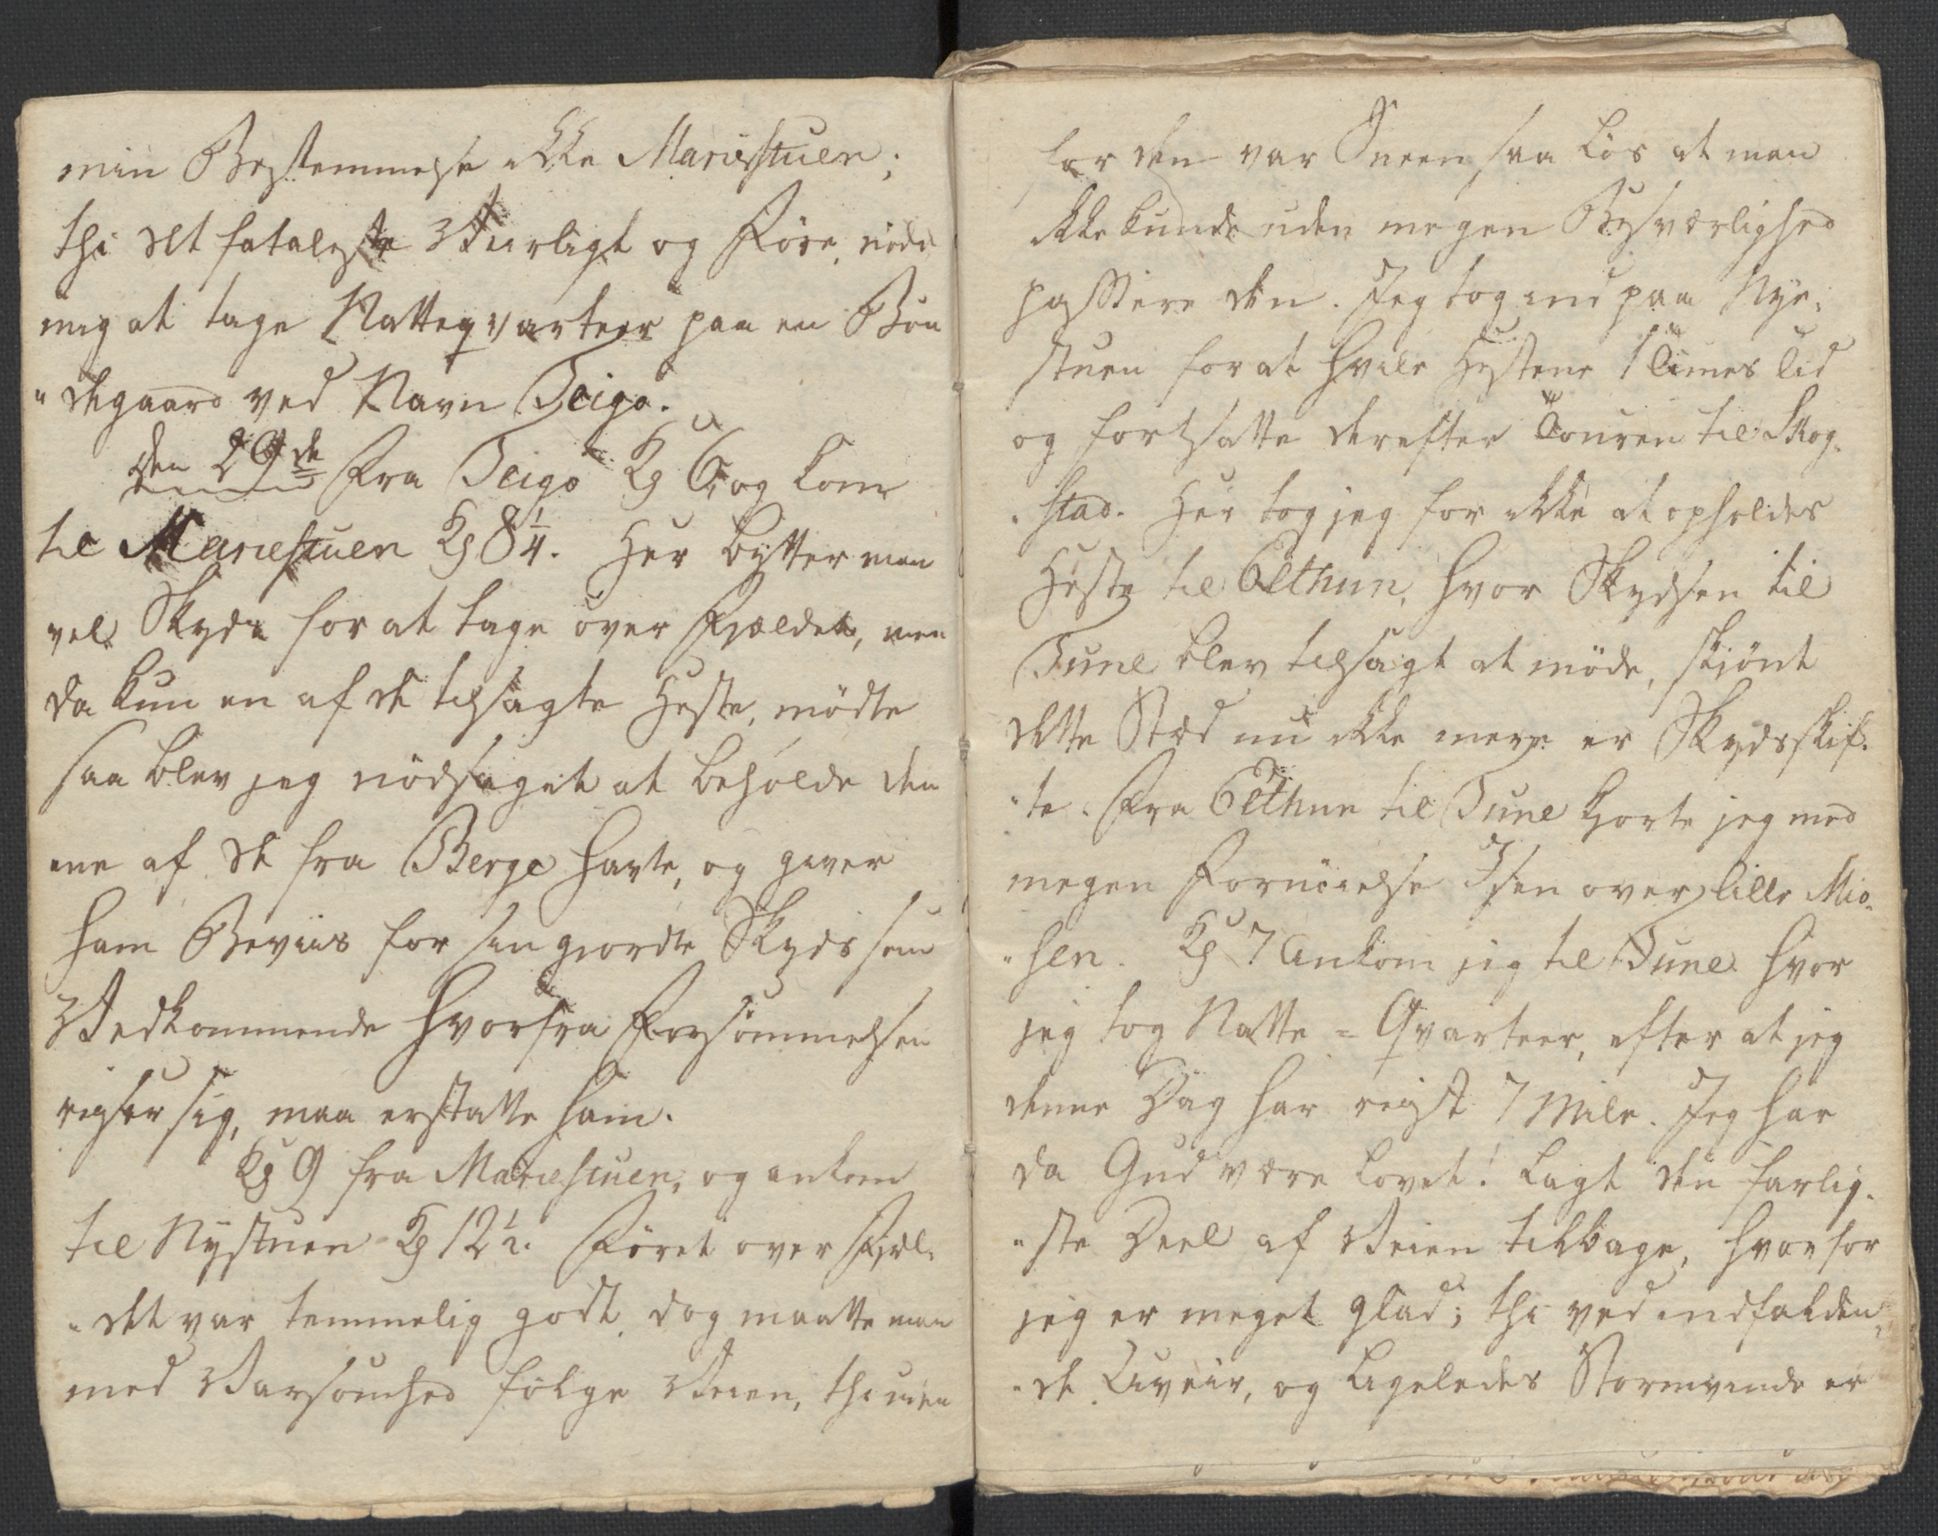 min Bestemmelse ikke Mariestuen;
thi det fataleste Veirligt og Føre, nødte
mig at tage Natteqvarteer paa en Bon
"degaard ved Navn Teigo.
den 29de Fra Teigo Kl 6, og kom
til Mariestuen Kl 8 1/4. Her bytter man
vel Skyds for at tage over Fjældet, men
da kun en af de tilsagte Heste, mødte
saa blev jeg nødsaget at beholde den
ene af de fra Berge havte, og giver
ham Beviis for sin giordte Skyds som
Vedkommende hvorfra Forsømmelsen
reiser sig, maa erstatte ham.
Kl 9 fra Mariestuen, og ankom
til Nystuen Kl 12 1/2. Føret over Fjæl-
"det var temmelig godt, dog maatte man
med Varsomhed følge Veien, thi uden
for den var Sneen saa løs at man
ikke kunde uden megen Besværlighed
passere den. Jeg tog ind paa Nye-
stuen for at hvile Hestene 1 Times Tid
og fortsatte derefter Touren til Skog-
"stad. Her tog jeg for ikke at opholdes
Heste til Ølthun, hvor Skydsen til
Tune blev tilsagt at møde, skjønt
dette Stæd nu ikke mere er Skydsskif-
"te. Fra Ølthun til Tune kjørte jeg med
megen Fornøielse Isen over lille Miø-
"sen. Kl 7 ankom jeg til Tune hvor
jeg tog Natte=Qvarteer, efter at jeg
denne Dag har reist 7 Mile. Jeg har
da Gud være lovet! lagt den farlig-
"ste Deel af Veien tilbage, hvorfor
jeg er meget glad; thi ved indfalden-
"de Uveir, og ligeledes Stormvinde er